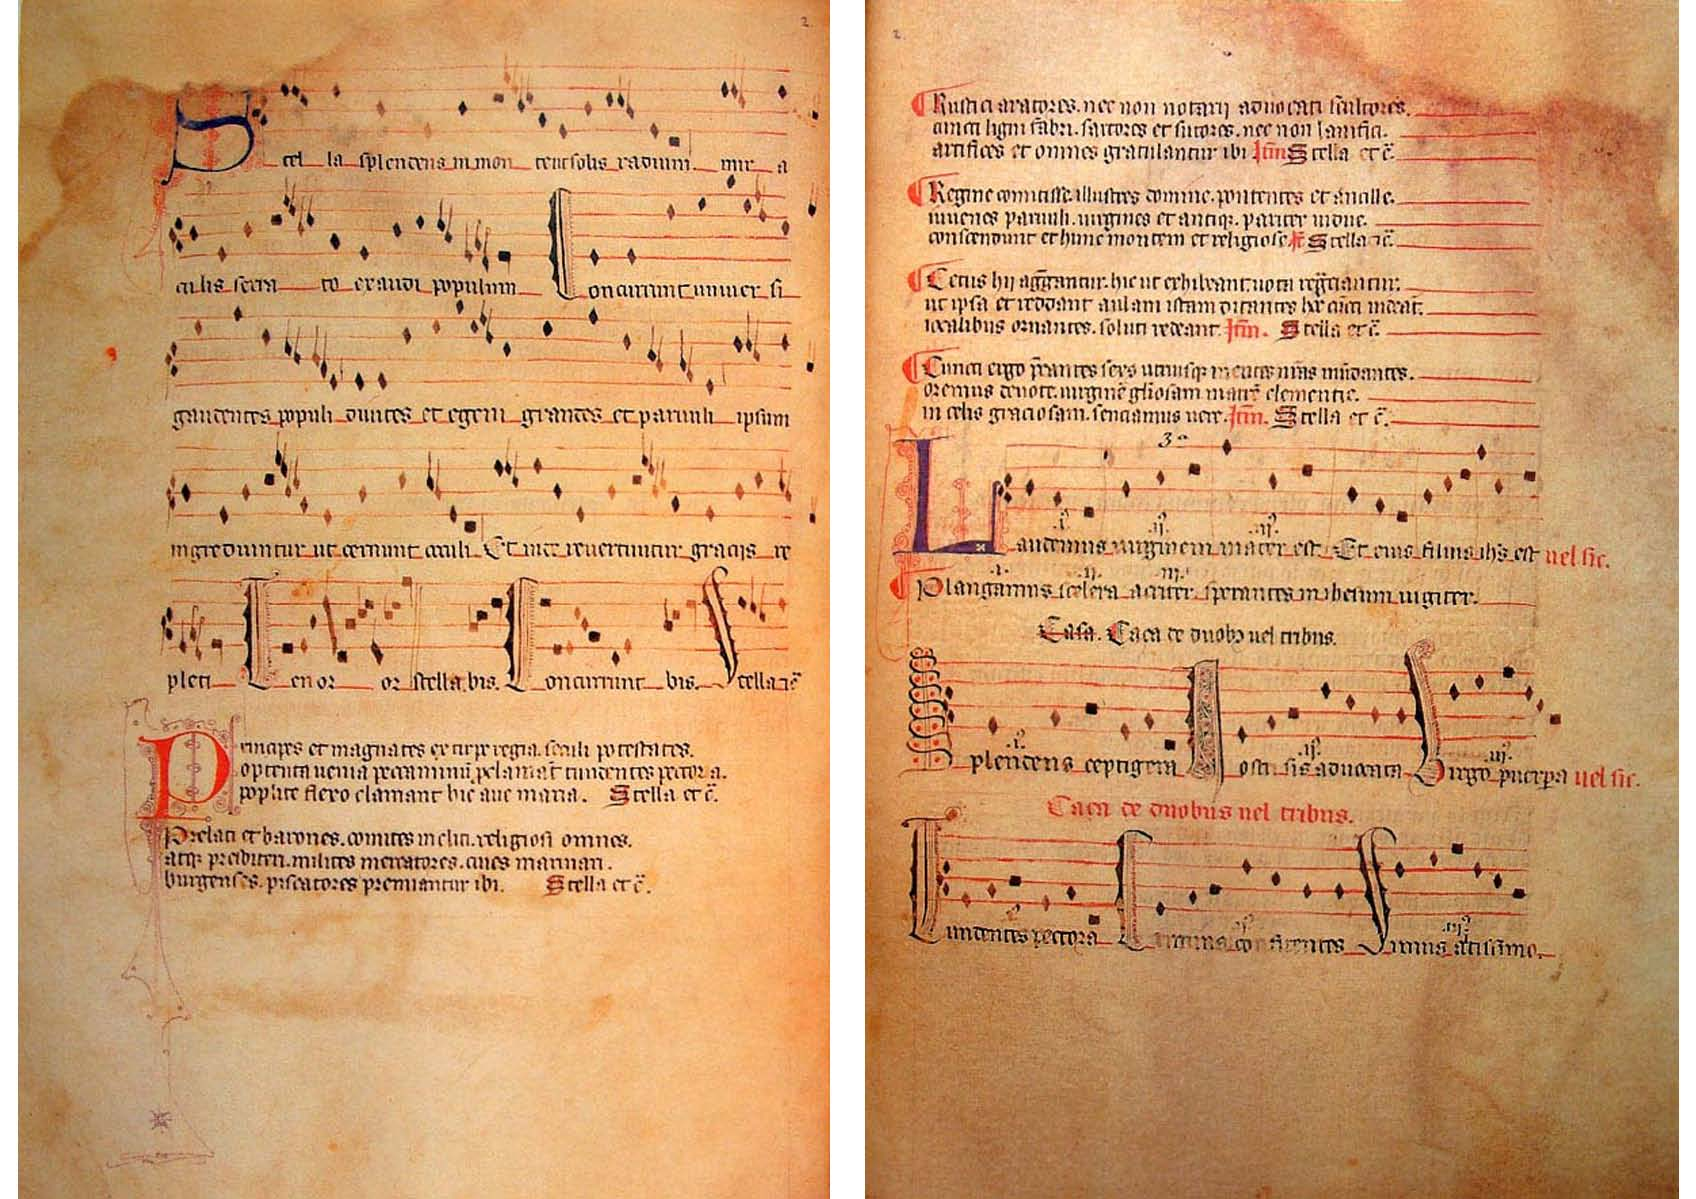 2.
Stel la splendens in mon te ut solis radium mir a
culis serra to exaudi populum Concurrunt univer si
gaudentes populi divites et egeni grandes et parvuli ipsum
ingrediuntur ut cernunt oculi Et inde revertuntur graciis re
pleti Tenor or stella bis. Concurrunt bis. Stella
Principes et magnates ex stirpe regia. seculi potestates.
optenta venia peccaminũ tundentes pectora.
poplite flexo clamant hic ave maria. Stella et c̃.
Prelati et barones. comites incliti. religiosi omnes.
atq presbiteri. milites mercatores. cives marinari.
burgenses. piscatores premiantur ibi. Stella et c̃.
2.
Rustici aratores. nec non notarii advocati scultores.
cuncti ligni fabri. sartores et sutores. nec non lanifici.
artifices et omnes gratulantur ibi Itm̃ Stella et c̃.
Regine comitisse. illustres domine. potentes et ancille.
iuvenes parvuli. virgines et antiq. pariter vidue.
conscendunt et hunc montem et religiose Stella
Cetus hii aggregantur. hic ut exhibeant vota
ut ipsa et reddant aulam istam ditantes
iocalibus ornantes. soluti redeant. Itm̃. Stella et c̃.
Cuncti ergo p̃cantes sexus utriusq mentes nr̃as mũdantes.
oremus devote. virginẽ gl̃iosam matrẽ clemencie.
in celis graciosam. senciamus vere. Itm̃. Stella et c̃.
3ᵃ
.i. .ij. .iij.
Laudemus virginem mater est Et eius filius ihs est vel sic.
.i. .ij. .iij.
Plangamus scelera acriter sperantes in ihesum iugiter.
Casa. Caça de duobȝ vel tribus.
.i. .ij. .iij.
Splendens ceptigera Nostri sis advocata Virgo puerpera vel sic.
Caça de duobus vel tribus.
.i. .ij. .iij.
Tundentes pectora Crimina confitentes Simus altissimo.